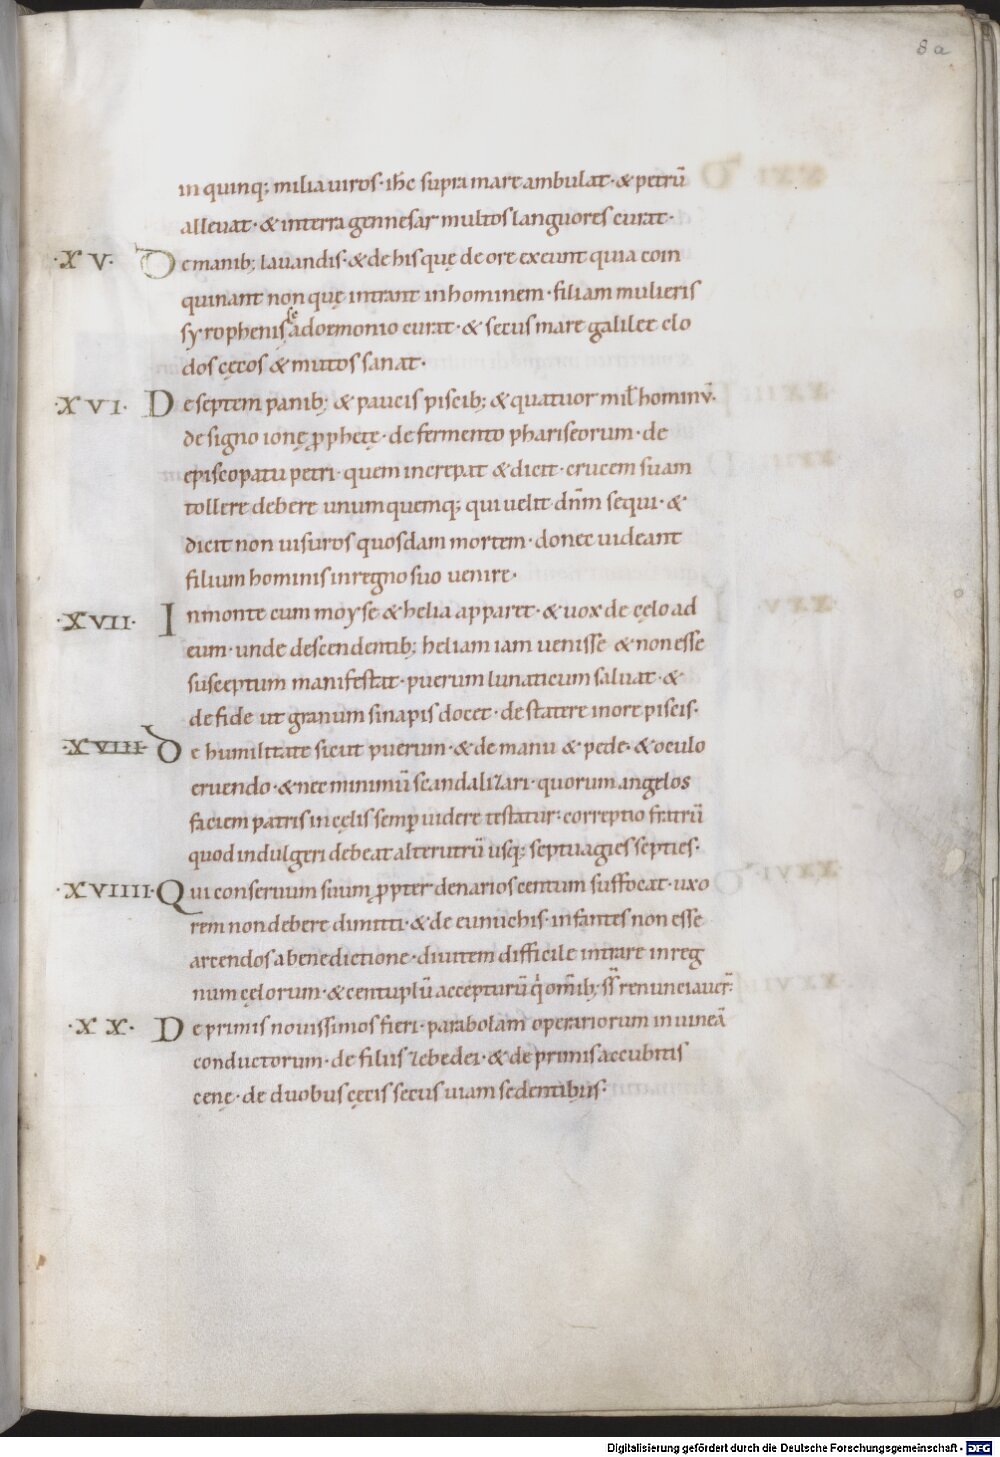 8a
in quinq; milia uiros· ihc̄ supra mare ambulat· & petrū
alleuat· & interra gennesar multos languores curat·
·XV· De manib; lauandis· & de his quę de ore exeunt quia coin
quinant non quę intrant in hominem· filiam mulieris
syrophenissę a doemonio curat· & secus mare galileę clo
dos cęcos & mutos sanat·
·XVI· De septem panib; & paucis piscib; & quatuor mil̄ hominū·
de signo ionę ꝓphetę· de fermento phariseorum· de
episcopatu petri· quem increpat & dicit· crucem suam
tollere debere unumquemq; qui uelit dn̄m sequi· &
dicit non uisuros quosdam mortem· donec uideant
filium hominis in regno suo uenire·
·XVII· In monte cum moyse & helia apparet· & uox de cęlo ad
eum· unde descendentib; heliam iam uenisse & non esse
susceptum manifestat· puerum lunaticum saluat· &
de fide ut granum sinapis docet· de statere in ore piscis·
·XVIII· De humilitate sicut puerum· & de manu & pede· & oculo
eruendo· & nec minimū scandalizari· quorum angelos
faciem patris in cęlis semꝑ uidere testatur: correptio fratrū
quod indulgeri debeat alterutrū usq; septuagies septies·
·XVIIII· Qui conseruum suum ꝓpter denarios centum suffocat· uxo
rem non debere dimitti· & de eunuchis· infantes non esse
arcendos a benedictione· diuitem difficile intrare in reg
num cęlorum· & centuplū accepturū qi om̄ib; ss̄ renunciauer̄·
·XX· De primis nouissimos fieri· parabolam operariorum in uineā
conductorum· de filiis zebedei· & de primis accubitis
cenę· de duobus cęcis secus uiam sedentibus·
Digitalisierung gefördert durch die Deutsche Forschungsgemeinschaft - DFG